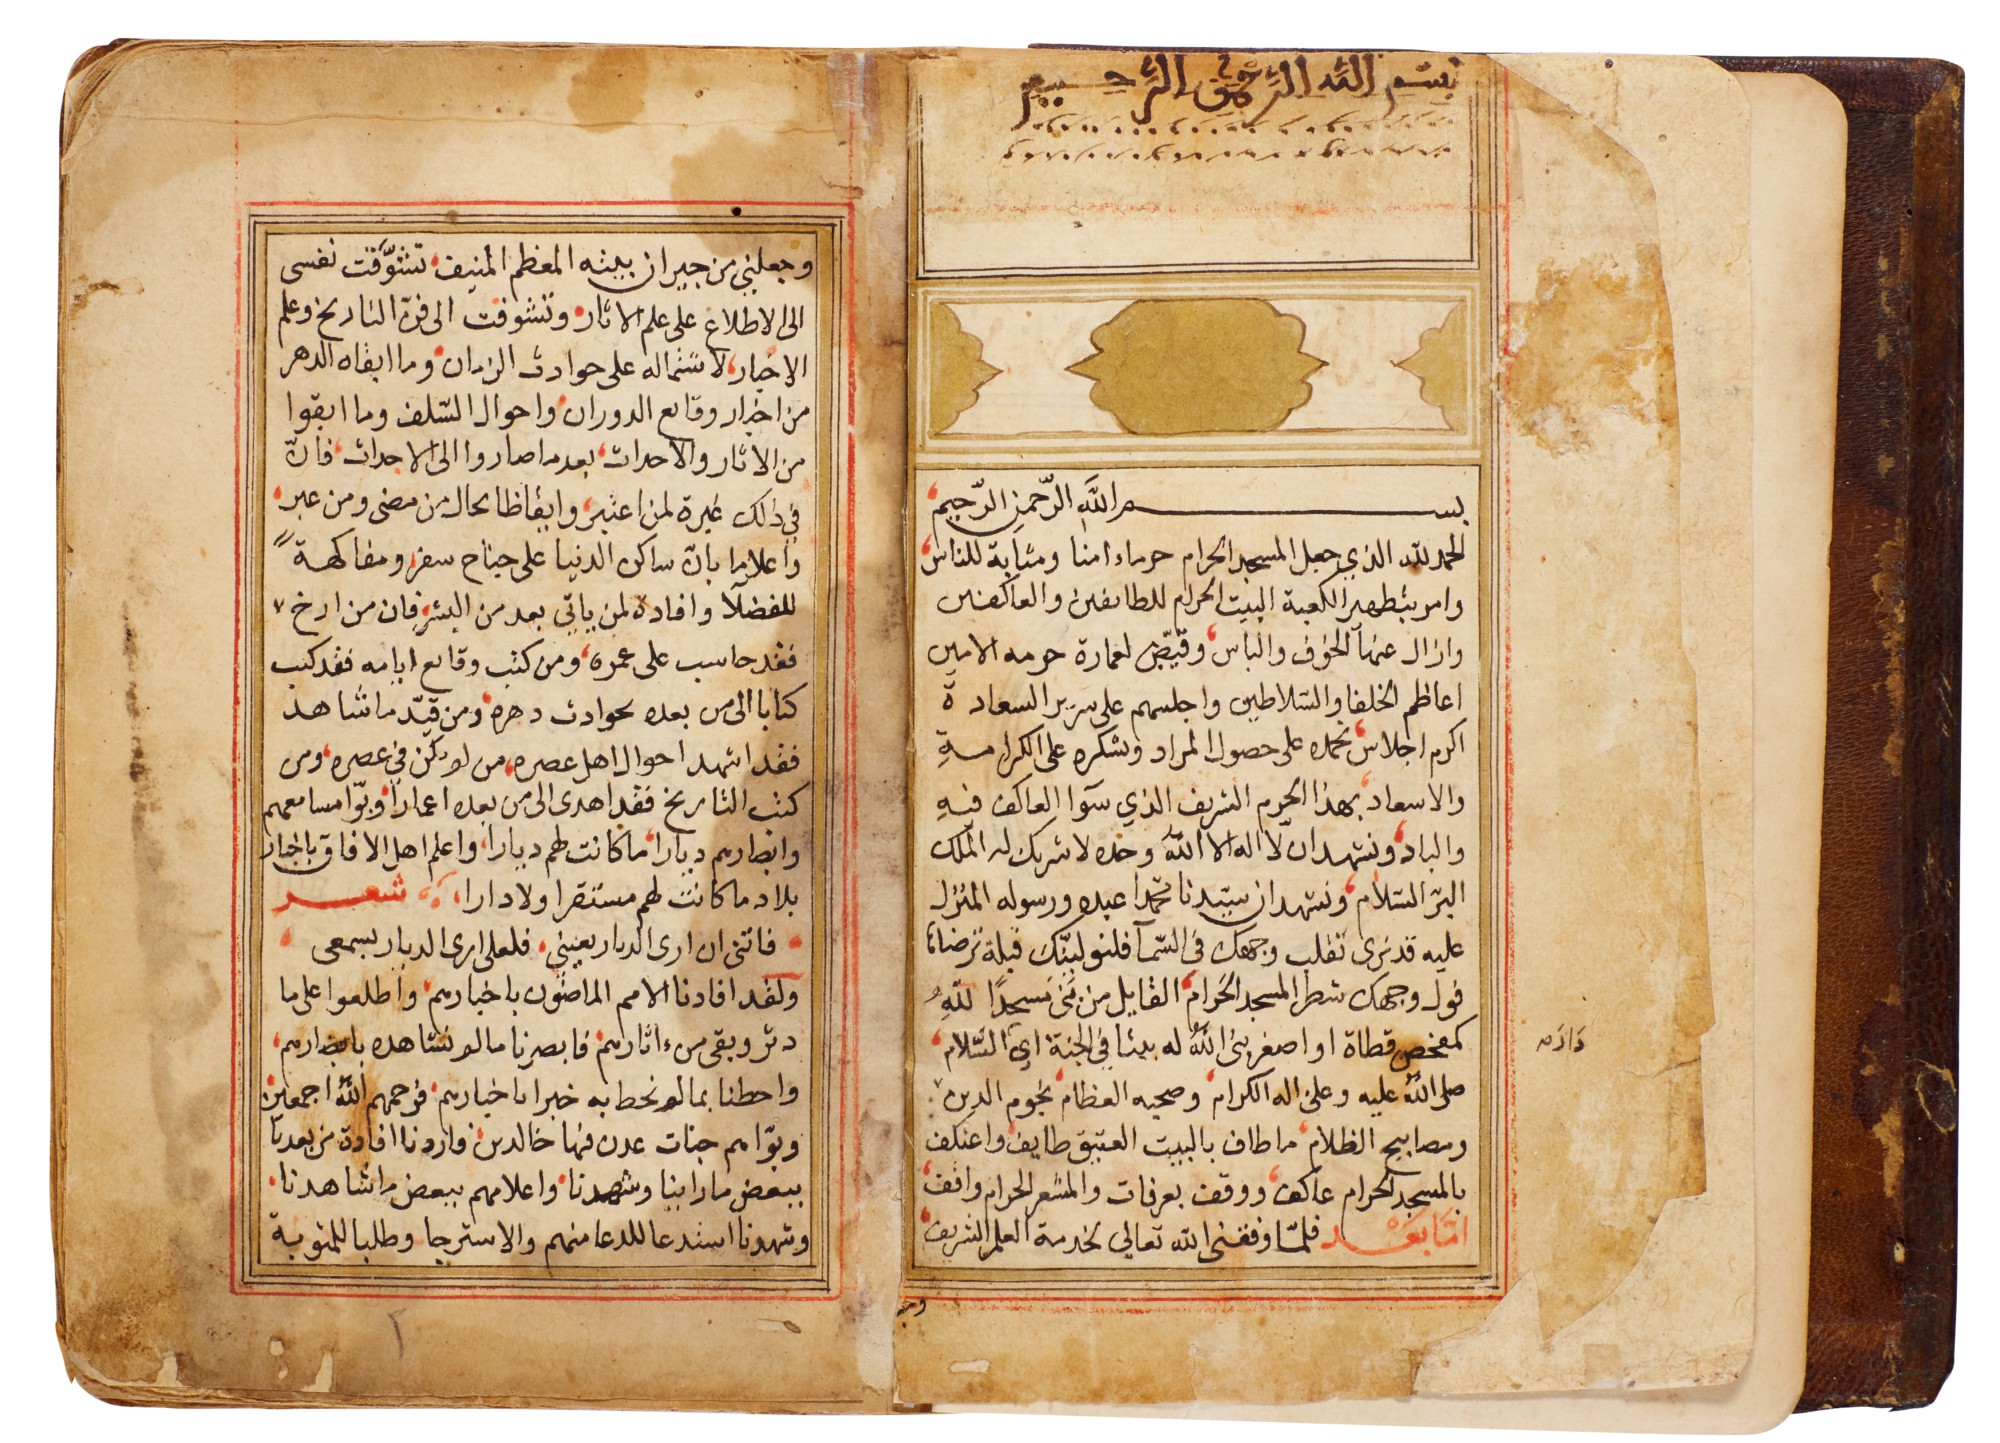 بسم الله الرحمن الرحيم
بســـــم اللَّه الرّحمن الرّحيم
الحمد لله الذي جعل المسجد الحرام حرماء امنا ومثابة للناس
وامر بتطهير الكعبة البيت الحرام للطايفين والعاكفين
وازال عنها الخوف والباس وقيّض لعمارة حرمه الامين
اعاظم الخلفا والسّلاطين واجلسهم على سرير السعادة
اكرم اجلاس نحمده على حصول المراد ونشكره على الكرامة
والاسعاد بهذا الحرم الشريف الذي سوآ العاكف فيه
والباد ونشهد ان لّا اله الا اللَّه وحده لا شريك له الملك
البرّ السّلام ونشهد ان سيّدنا محمّدا عبده ورسوله المنزل
عليه قد نرى تقلب وجهك في السّمآ فلنولينّك قبلة ترضاها
فول وجهك شطر المسجد الحرام القايل من بنى مسجدًا للّه
كمفحص قطاة او اصغر بنى اللَّه له بيتا في الجنة اي السّلام
دَادَه
صلى اللَّه عليه وعلى اله الكرام وصحبه العظام نجوم الدين
ومصابيح الظلام ما طاف بالبيت العتيق طايف واعتكف
بالمسجد الحرام عاكف ووقف بعرفات والمشعر الحرام واقف
امّا بَعْـــد فلمّا وفقني الله تعالى لخدمة العلم الشريف
وجعلني من جيران بيته المعظم المنيف تشوّقت نفسي
الى الاطلاع على علم الاثار وتشوفت الى فنّ التاريخ وعلم
الاخبار لاشتماله على حوادث الزمان وما ابقاه الدهر
من اخبار وقايع الدوران واحوال السّلف وما ابقوا
من الاثار والاحداث بعد ما صاروا الى الاجداث فانّ
في ذلك عبرة لمن اعتبر وايقاظا بحال من مضى ومن عبر
واعلاما بانّ ساكن الدنيا على جناح سفر ومفاكهة
للفضلآ وافادة لمن ياتي بعد من البشر فان من ارخ
فقد حاسب على عمره ومن كتب وقايع ايامه فقد كتب
كتابا الى من بعده بحوادث دهره ومن قيّد ما شاهد
فقد اشهد احوال اهل عصره من لم يكن في عصره ومن
كتب التاريخ فقد اهدى الى من بعده اعمارا وبوّا مسامعهم
وابصارهم ديارا ما كانت لهم ديارا واعلم اهل الافاق باخبار
بلاد ما كانت لهم مستقرا ولا دارا شعـــر
فاتني ان ارى الديار بعيني فلعلي ارى الديار بسمعي
ولقد افادنا الامم الماضون باخبارهم واطلعوا على ما
دثر وبقي من ءاثارهم فابصرنا ما لم نشاهده بابصارهم
واحطنا بما لم نحط به خبرا باخبارهم فرحمهم اللَّه اجمعين
وبوّاهم جنات عدن فيها خالدين واردنا افادة من بعدنا
ببعض ما راينا وشهدنا واعلامهم ببعض ما شاهدنا
وشهدنا استدعا للدعا منهم والاسترحا وطلبا للمثوبة
٢